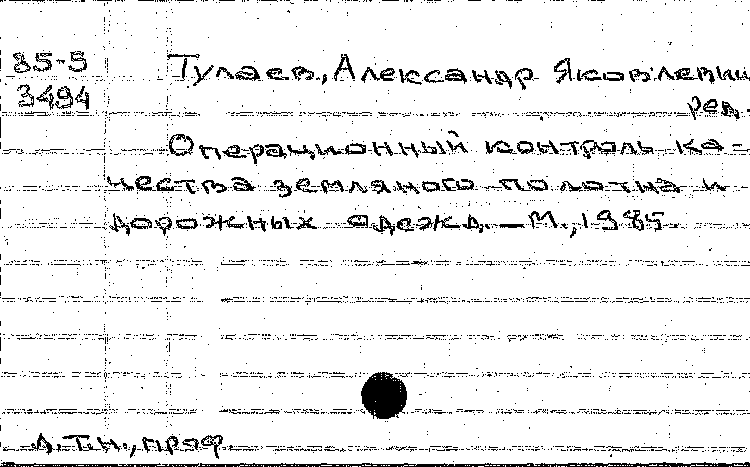 85-5
3494
Тулаев, Александр Яковлевич
ред.
Операционный контроль ка-
чества земляного полотна и
дорожных одежд. — М., 1985.
д.т.н., проф.